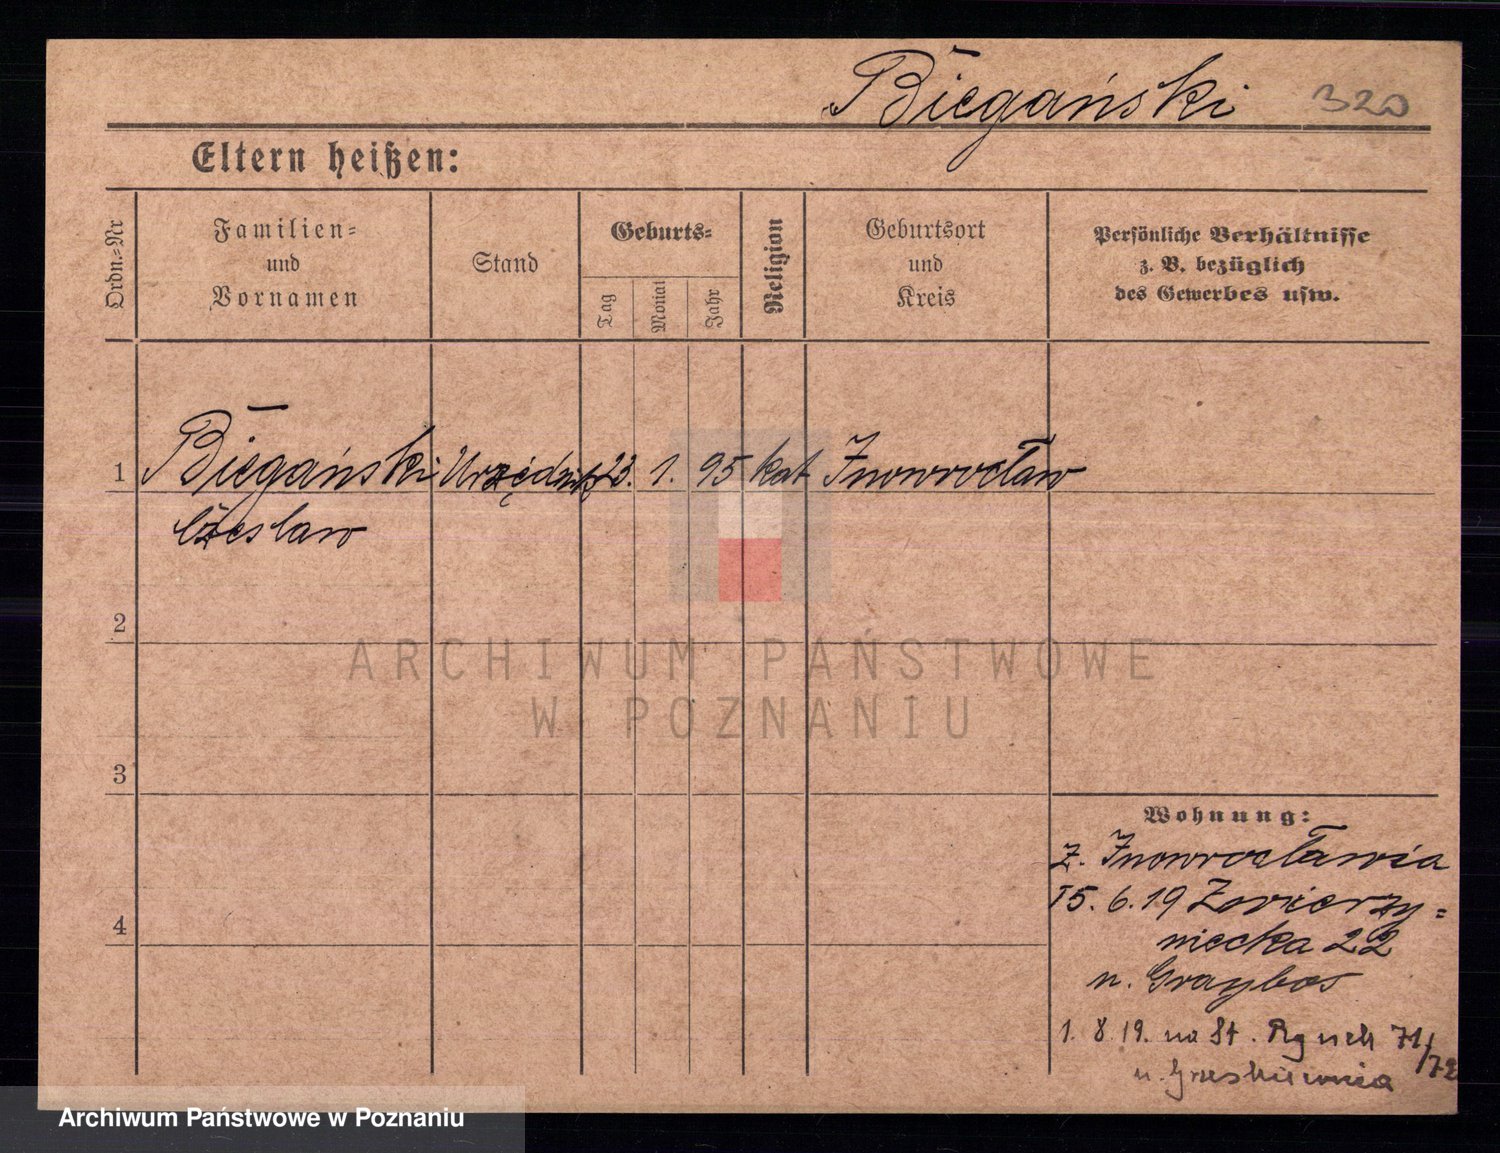 Biegański 320
Eltern heißen:
Ordn.=Nr
Familien=
und
Vornamen
Stand
Geburts=
Tag
Monat
Jahr
Religion
Geburtsort
und
Kreis
Persönliche Verhältnisse
z. B. bezüglich
des Gewerbes usw.
1 Biegański Urzędnik 23. 1. 95 kat Inowrocław
Czesław
2
3
4
Wohnung:
z. Inowrocławia
15. 6. 19 Zwierzy=
niecka 22
u.
1. 8. 19. na St. Rynek 71/72
u.
ARCHIWUM PAŃSTWOWE
W POZNANIU
Archiwum Państwowe w Poznaniu